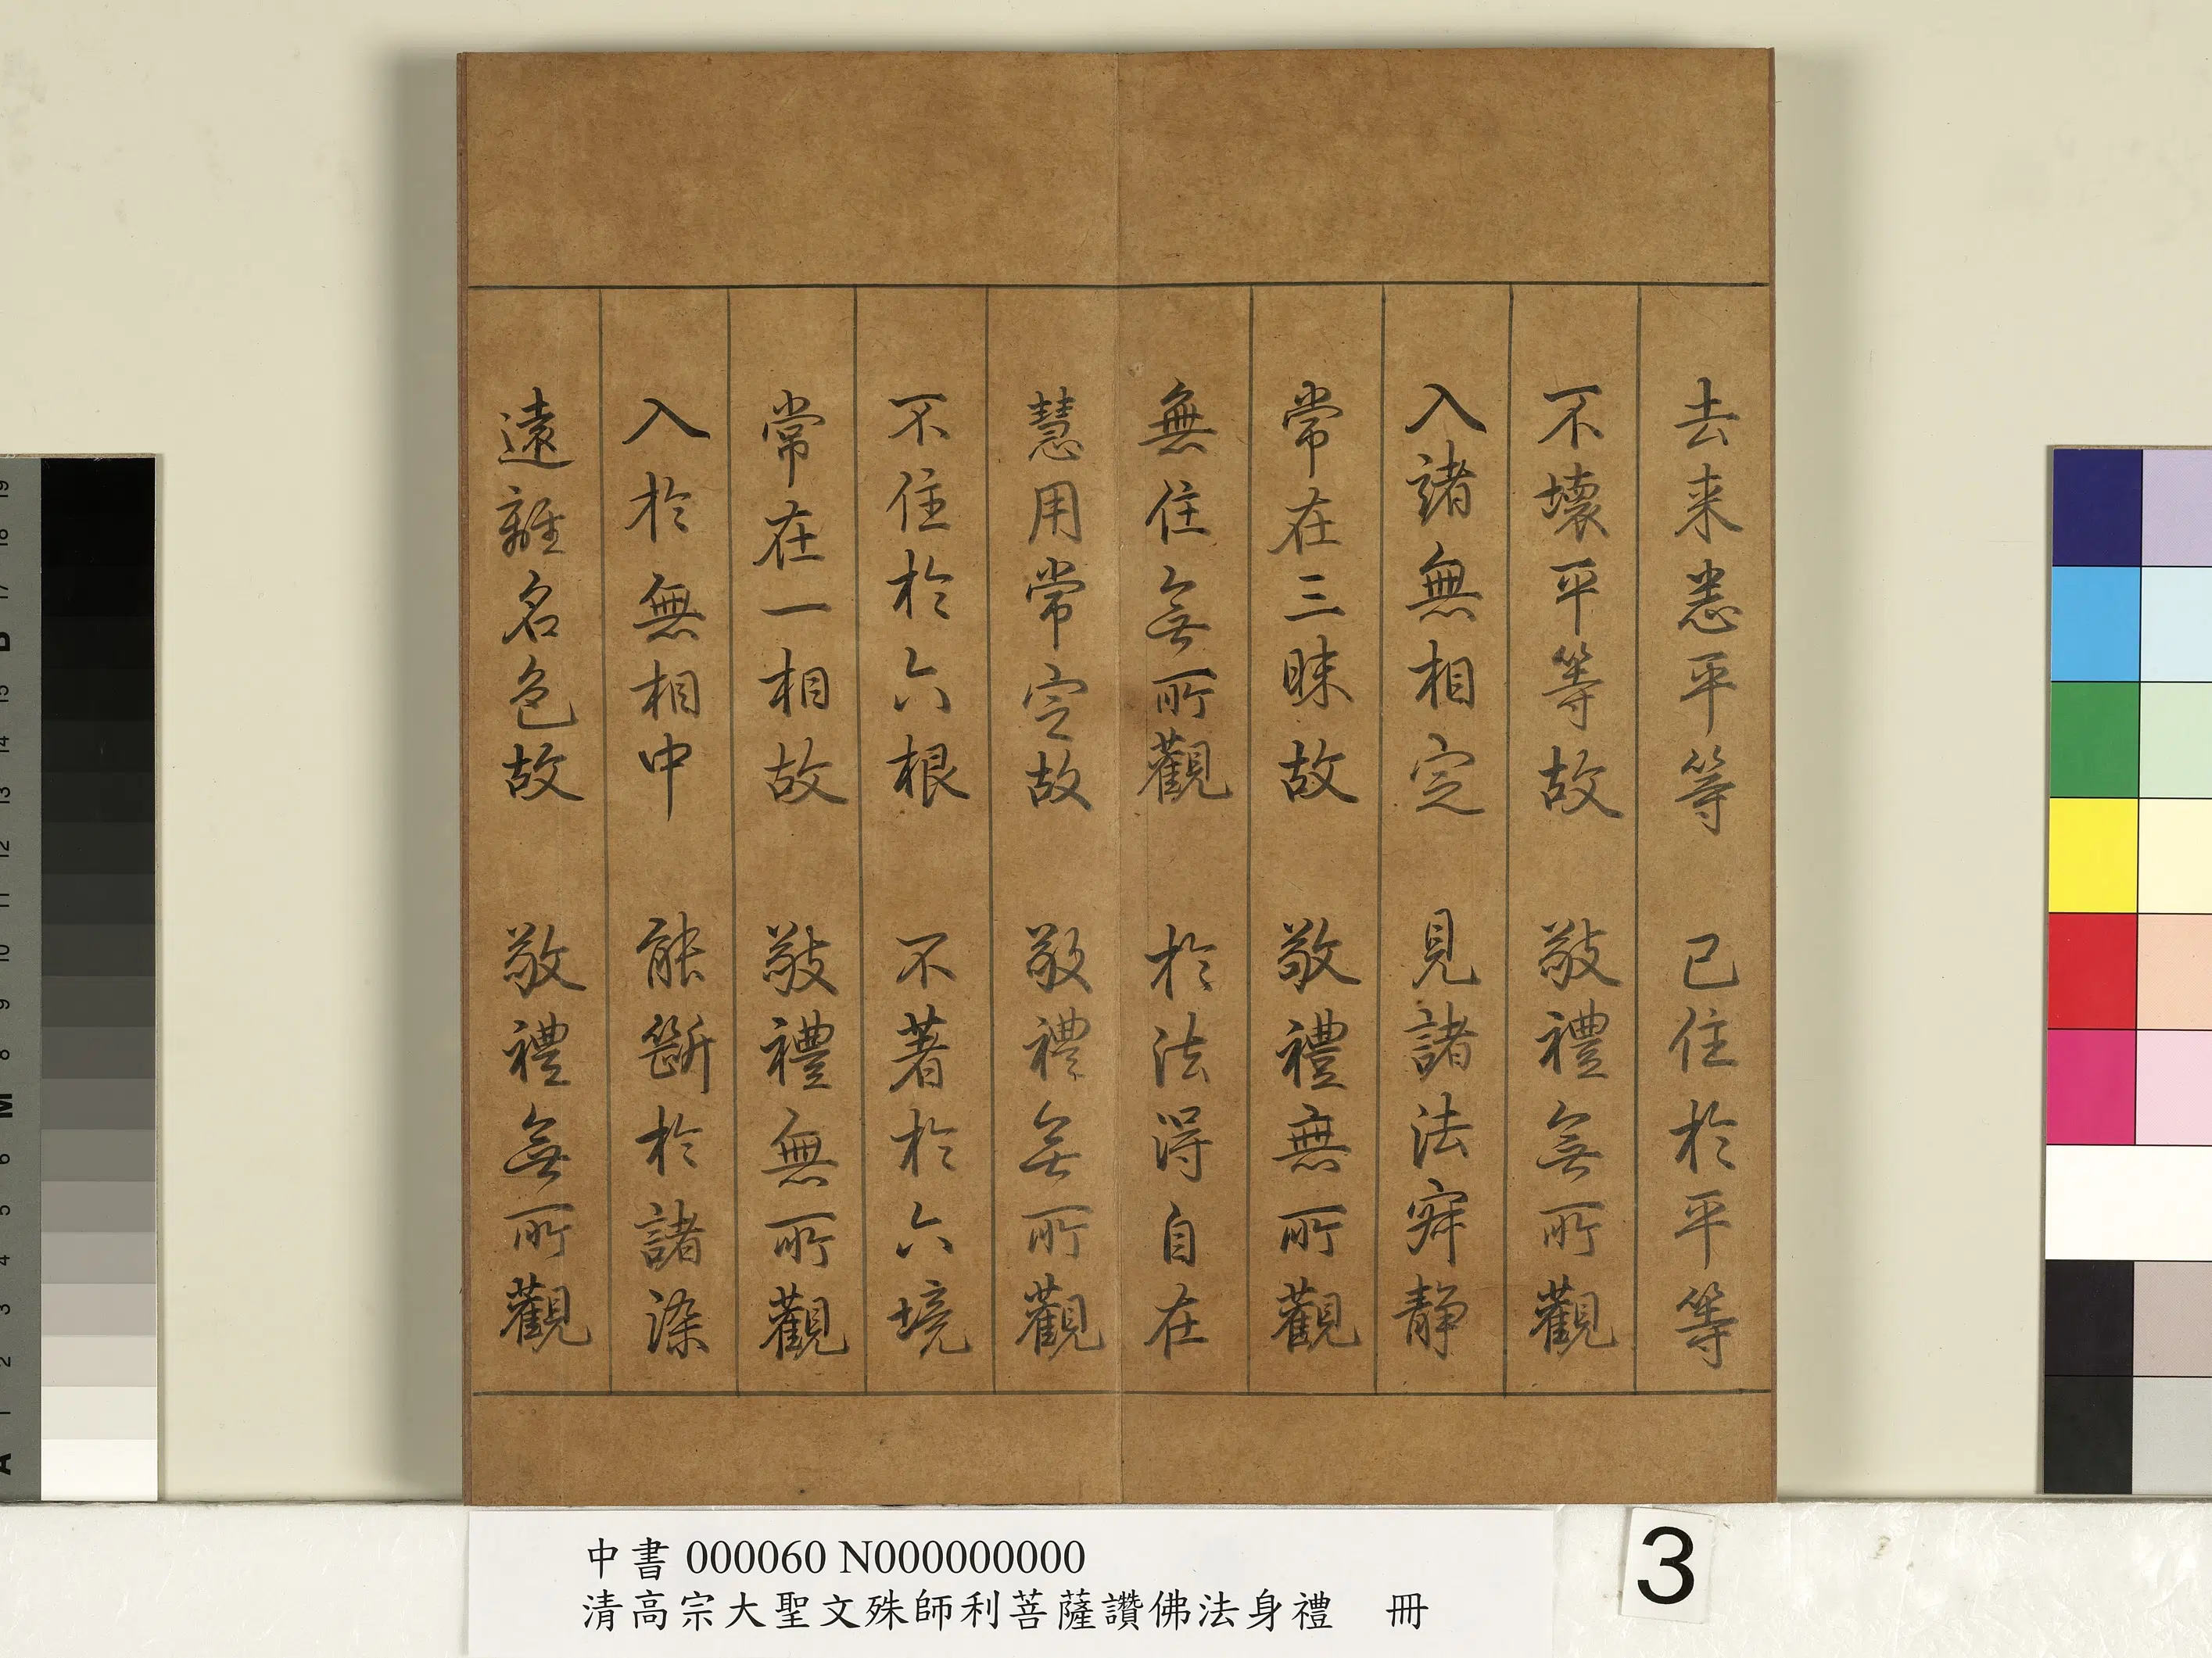 去来悉平等 已住於平等
不壞平等故 敬禮無所觀
入諸無相定 見諸法寂静
常在三昧故 敬禮無所觀
無住無所觀 於法得自在
慧用常定故 敬禮無所觀
不住於六根 不著於六境
常在一相故 敬禮無所觀
入於無相中 能斷於諸染
遠離名色故 敬禮無所觀
中書 000060 N000000000
清高宗大聖文殊師利菩薩讚佛法身禮 冊
3
19
18
17
B
15
14
13
12
11
10
9
8
M
6
5
4
3
2
1
A